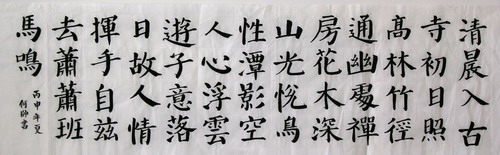 清晨入古
寺初日照
髙林竹徑
通幽處禪
房花木深
山光悅鳥
性潭影空
人心浮雲
遊子意落
日故人情
揮手自茲
去蕭蕭班
馬鳴
丙申年夏
書